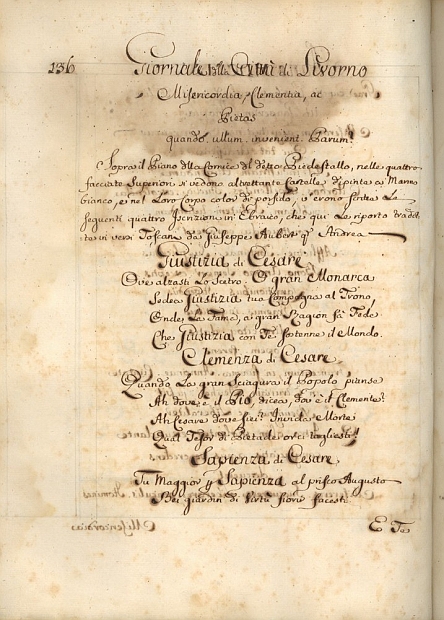 136 Giornale della Città di Livorno
Misericordia, Clementia, ac
Pietas
quando ullum invenient Parum?
Sopra il Piano della Cornice del detto Piedestallo, nelle quattro
facciate Superiori si vedono altrettante Cartelle dipinte a Marmo
bianco, e nel Loro Corpo color di porfido, v'erono scritte Le
seguenti quattro Iscrizioni in Ebraico, che qui Le riporto tradot
te in versi Toscani da Giuseppe Aubert qm Andrea
Giustizia di Cesare
Ove alzasti Lo Scetro. O gran Monarca
Sedea Giustizia tua Compagna al Trono,
Onde La Fama, a gran Ragion fà Fede
Che Giustizia con Te sostenne il Mondo.
Clemenza di Cesare.
Quando La gran Sciagura il Popolo pianse
Ah dove è il Pio dicea, dov'è il Clemente?
Ah Cesare dove sei? Invida Morte
Qual Tesor di Pietade or ci togliesti!
Sapienza di Cesare.
Tu Maggior Sapienza al prisco Augusto
Bei giardin di Virtù fiorir facesti
E Tu